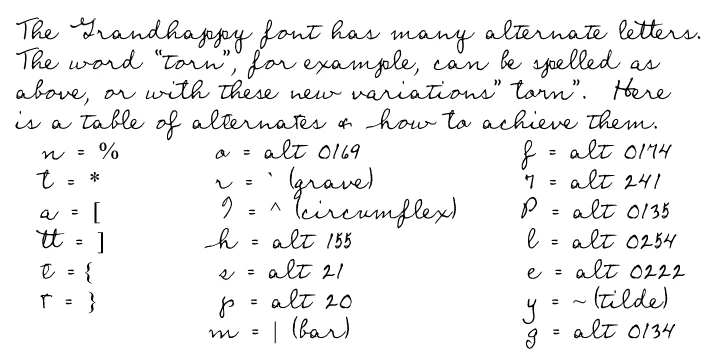 The Grandhappy font has many alternate letters.
The word "torn", for example, can be spelled as
above, or with these new variations" torn". Here
is a table of alternates & how to achieve them.
n = %
t = *
a = [
tt = ]
t = {
r = }
o = alt 0169
r = ` (grave)
? = ^ (circumflex)
h = alt 155
s = alt 21
p = alt 20
m = | (bar)
f = alt 0174
7 = alt 241
P = alt 0135
l = alt 0254
e = alt 0222
y = ~ (tilde)
g = alt 0134